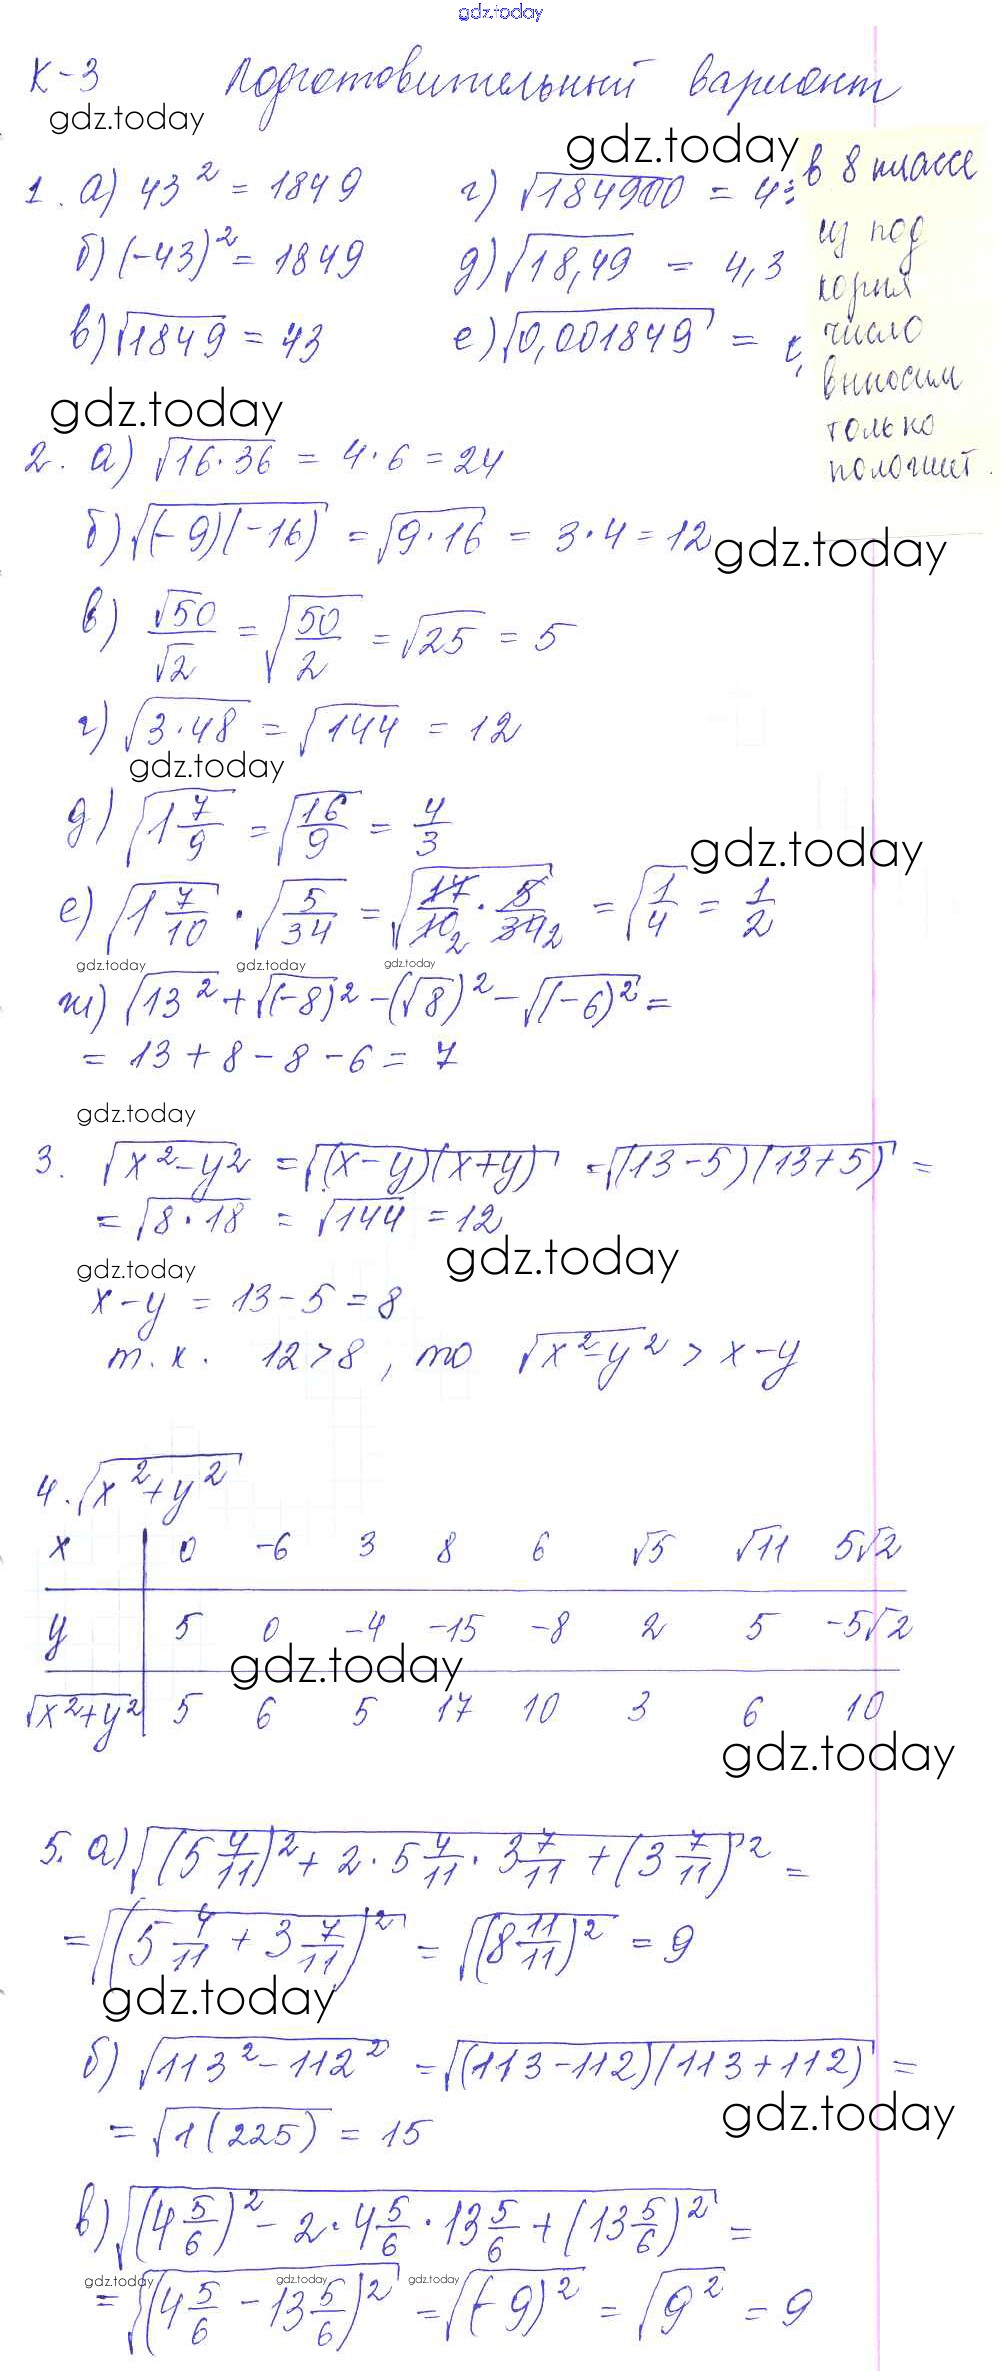 gdz.today
К-3 Подготовительный вариант
gdz.today
gdz.today
в 8 классе
из под
корня
число
выносим
только
положит.
1. а) 43² = 1849 г) √184900 = 43
б) (-43)² = 1849 д) √18,49 = 4,3
в) √1849 = 43 е) √0,001849 =
gdz.today
2. а) √16·36 = 4·6 = 24
б) √(-9)(-16) = √9·16 = 3·4 = 12
gdz.today
в) √50/√2 = √50/2 = √25 = 5
г) √3·48 = √144 = 12
gdz.today
д) √1 7/9 = √16/9 = 4/3
gdz.today
е) √1 7/10 · √5/34 = √17/10 2 · 5/34 2 = √1/4 = 1/2
gdz.today gdz.today gdz.today
ж) √13² + √(-8)² - (√8)² - √(-6)² =
= 13 + 8 - 8 - 6 = 7
gdz.today
3. √x²-y² = √(x-y)(x+y) = √(13-5)(13+5) =
= √8·18 = √144 = 12
gdz.today
gdz.today
x-y = 13-5 = 8
т.к. 12>8, то √x²-y² > x-y
4. √x²+y²
x 0 -6 3 8 6 √5 √11 5√2
y 5 0 -4 -15 -8 2 5 -5√2
gdz.today
√x²+y² 5 6 5 17 10 3 6 10
gdz.today
5. а) √(5 4/11)² + 2·5 4/11·3 7/11 + (3 7/11)² =
= √(5 4/11 + 3 7/11)² = √(8 11/11)² = 9
gdz.today
б) √113²-112² = √(113-112)(113+112) =
gdz.today
= √1(225) = 15
в) √(4 5/6)² - 2·4 5/6·13 5/6 + (13 5/6)² =
gdz.today gdz.today gdz.today
= √(4 5/6 - 13 5/6)² = √(-9)² = √9² = 9